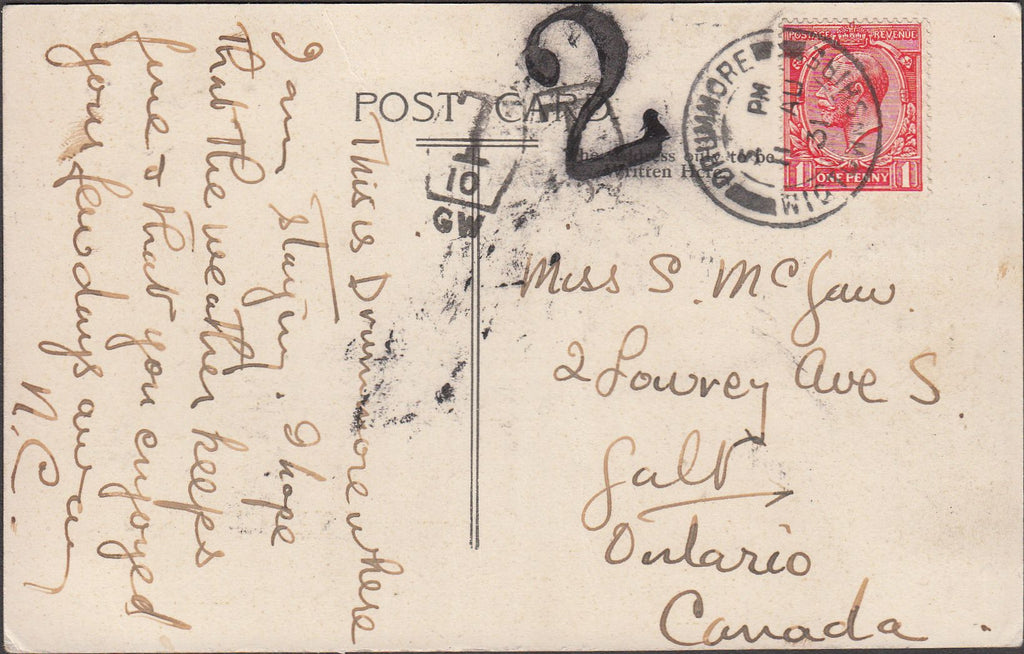 POST CARD.
The Address only to be
Written Here
2
1
10
GW
DRUMMORE
WIGTOWNSHIRE
PM
11 AU
31
POSTAGE REVENUE
1 ONE PENNY 1
This is Drummore where
I am staying. I hope
that the weather keeps
fine & that you enjoyed
your few days away
N.C.
Miss S. McGaw
2 Lowrey Ave S.
Galt
Ontario
Canada.